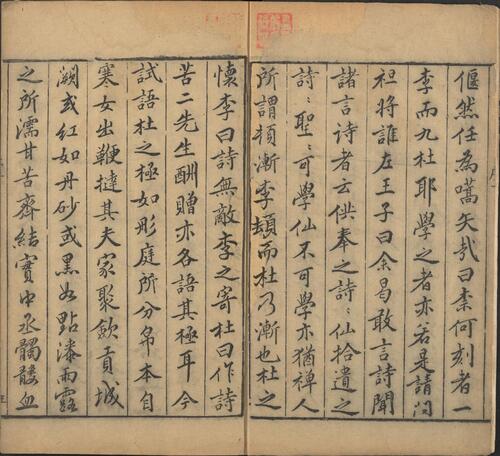 偃然任為嚆矢哉曰柰何刻者一
李而九杜耶學之者亦若是請問
袒將誰左王子曰余曷敢言詩聞
諸言詩者云供奉之詩〻仙拾遺之
詩〻聖〻可學仙不可學亦猶禪人
所謂頓漸李頓而杜乃漸也杜之
懷李曰詩無敵李之寄杜曰作詩
苦二先生酬贈亦各語其極耳今
試語杜之極如彤庭所分帛本自
寒女出鞭撻其夫家聚歛貢城
闕或紅如丹砂或黑如點漆雨露
之所濡甘苦齊結實中丞髑髏血